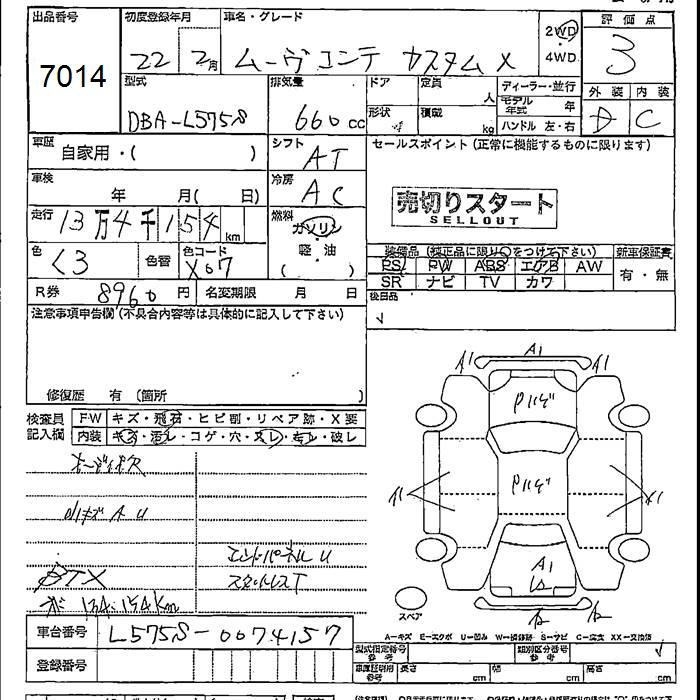 出品番号 初度登録年月 車名・グレード 評価点
7014 22 2月 ムーヴコンテ カスタムX 2WD 4WD 3
型式 排気量 ドア 定員 人 ディーラー・並行 外装 内装
DBA-L575S 660cc 形状 積載 kg モデル年式 年 ハンドル 左・右 D C
車歴 自家用・( ) シフト AT セールスポイント (正常に機能するものに限ります)
車検 年 月( 日) 冷房 AC 売切りスタート
SELLOUT
走行 13万4千154km 燃料 ガソリン
色 クロ 色替 色コード X07 軽・油 ( ) 装備品 (純正品に限り○をつけて下さい) 新車保証書
PS PW ABS エアB AW 有・無
SR ナビ TV カワ
R券 8960円 名変期限 月 日 後日品
注意事項申告欄 (不具合内容等は具体的に記入して下さい)
修復歴 有 (箇所
検査員 FW キズ・飛石・ヒビ割・リペア跡・X要
記入欄 内装 キズ・汚レ・コゲ・穴・スレ・キレ・破レ
A1 A1 A1
A1 A1
A1
エンドパネルU
スタットレスT
134.154km
スペア
A-キズ E-エクボ U-凹み W-補修跡 S-サビ C-腐食 XX-交換済
車台番号 L575S-0074157 型式指定番号 参考 類別区分番号 参考
登録番号 車庫証明用 参考 長さ cm 幅 cm 高さ cm